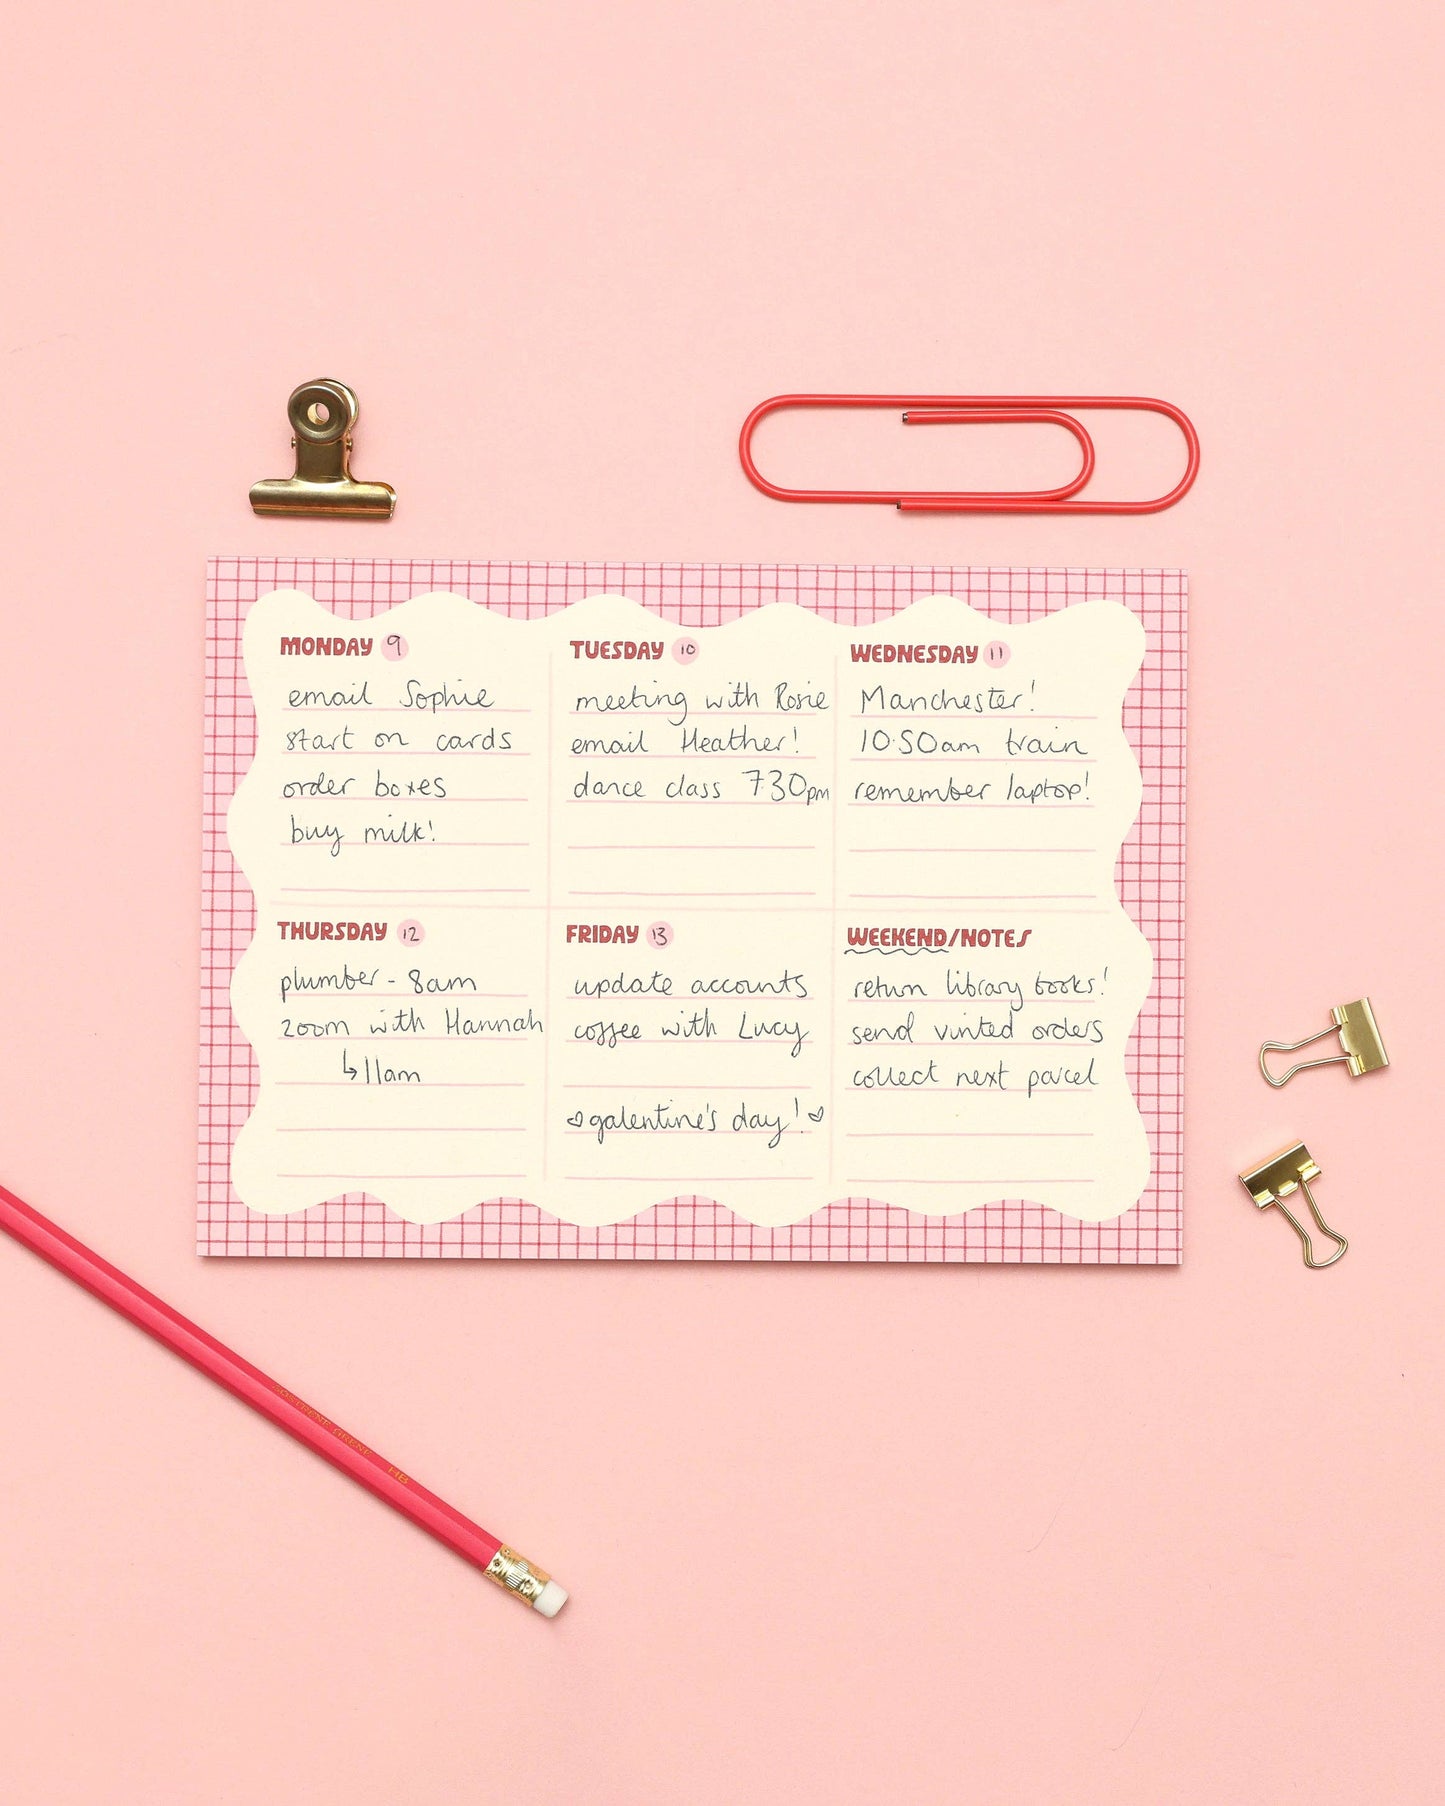 MONDAY 9
email Sophie
start on cards
order boxes
buy milk!
TUESDAY 10
meeting with Rosie
email Heather!
dance class 7.30pm
WEDNESDAY 11
Manchester!
10.50am train
remember laptop!
THURSDAY 12
plumber - 8am
zoom with Hannah
↳ 11am
FRIDAY 13
update accounts
coffee with Lucy
♡ galentine's day! ♡
WEEKEND/NOTES
return library books!
send vinted orders
collect next parcel
SOSTRENE GRENE HB